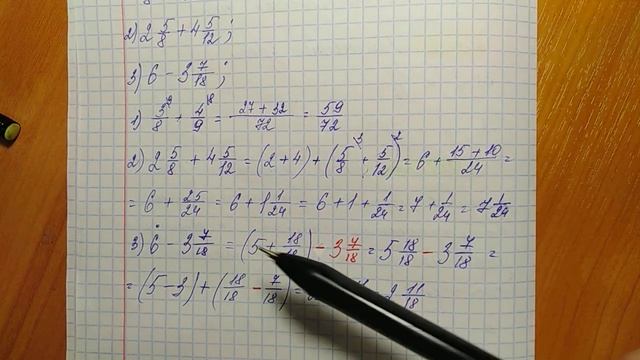 2) 2 5/8 + 4 5/12 ;
3) 6 − 3 7/18 ;
1) 3/8 ⁹ + 4/9 ⁸ = (27 + 32)/72 = 59/72
2) 2 5/8 + 4 5/12 = (2 + 4) + (5/8 ³ + 5/12 ²) = 6 + (15 + 10)/24 =
= 6 + 25/24 = 6 + 1 1/24 = 6 + 1 + 1/24 = 7 + 1/24 = 7 1/24
3) 6 − 3 7/18 = (5 + 18/18) − 3 7/18 = 5 18/18 − 3 7/18 =
= (5 − 3) + (18/18 − 7/18) = 2 11/18